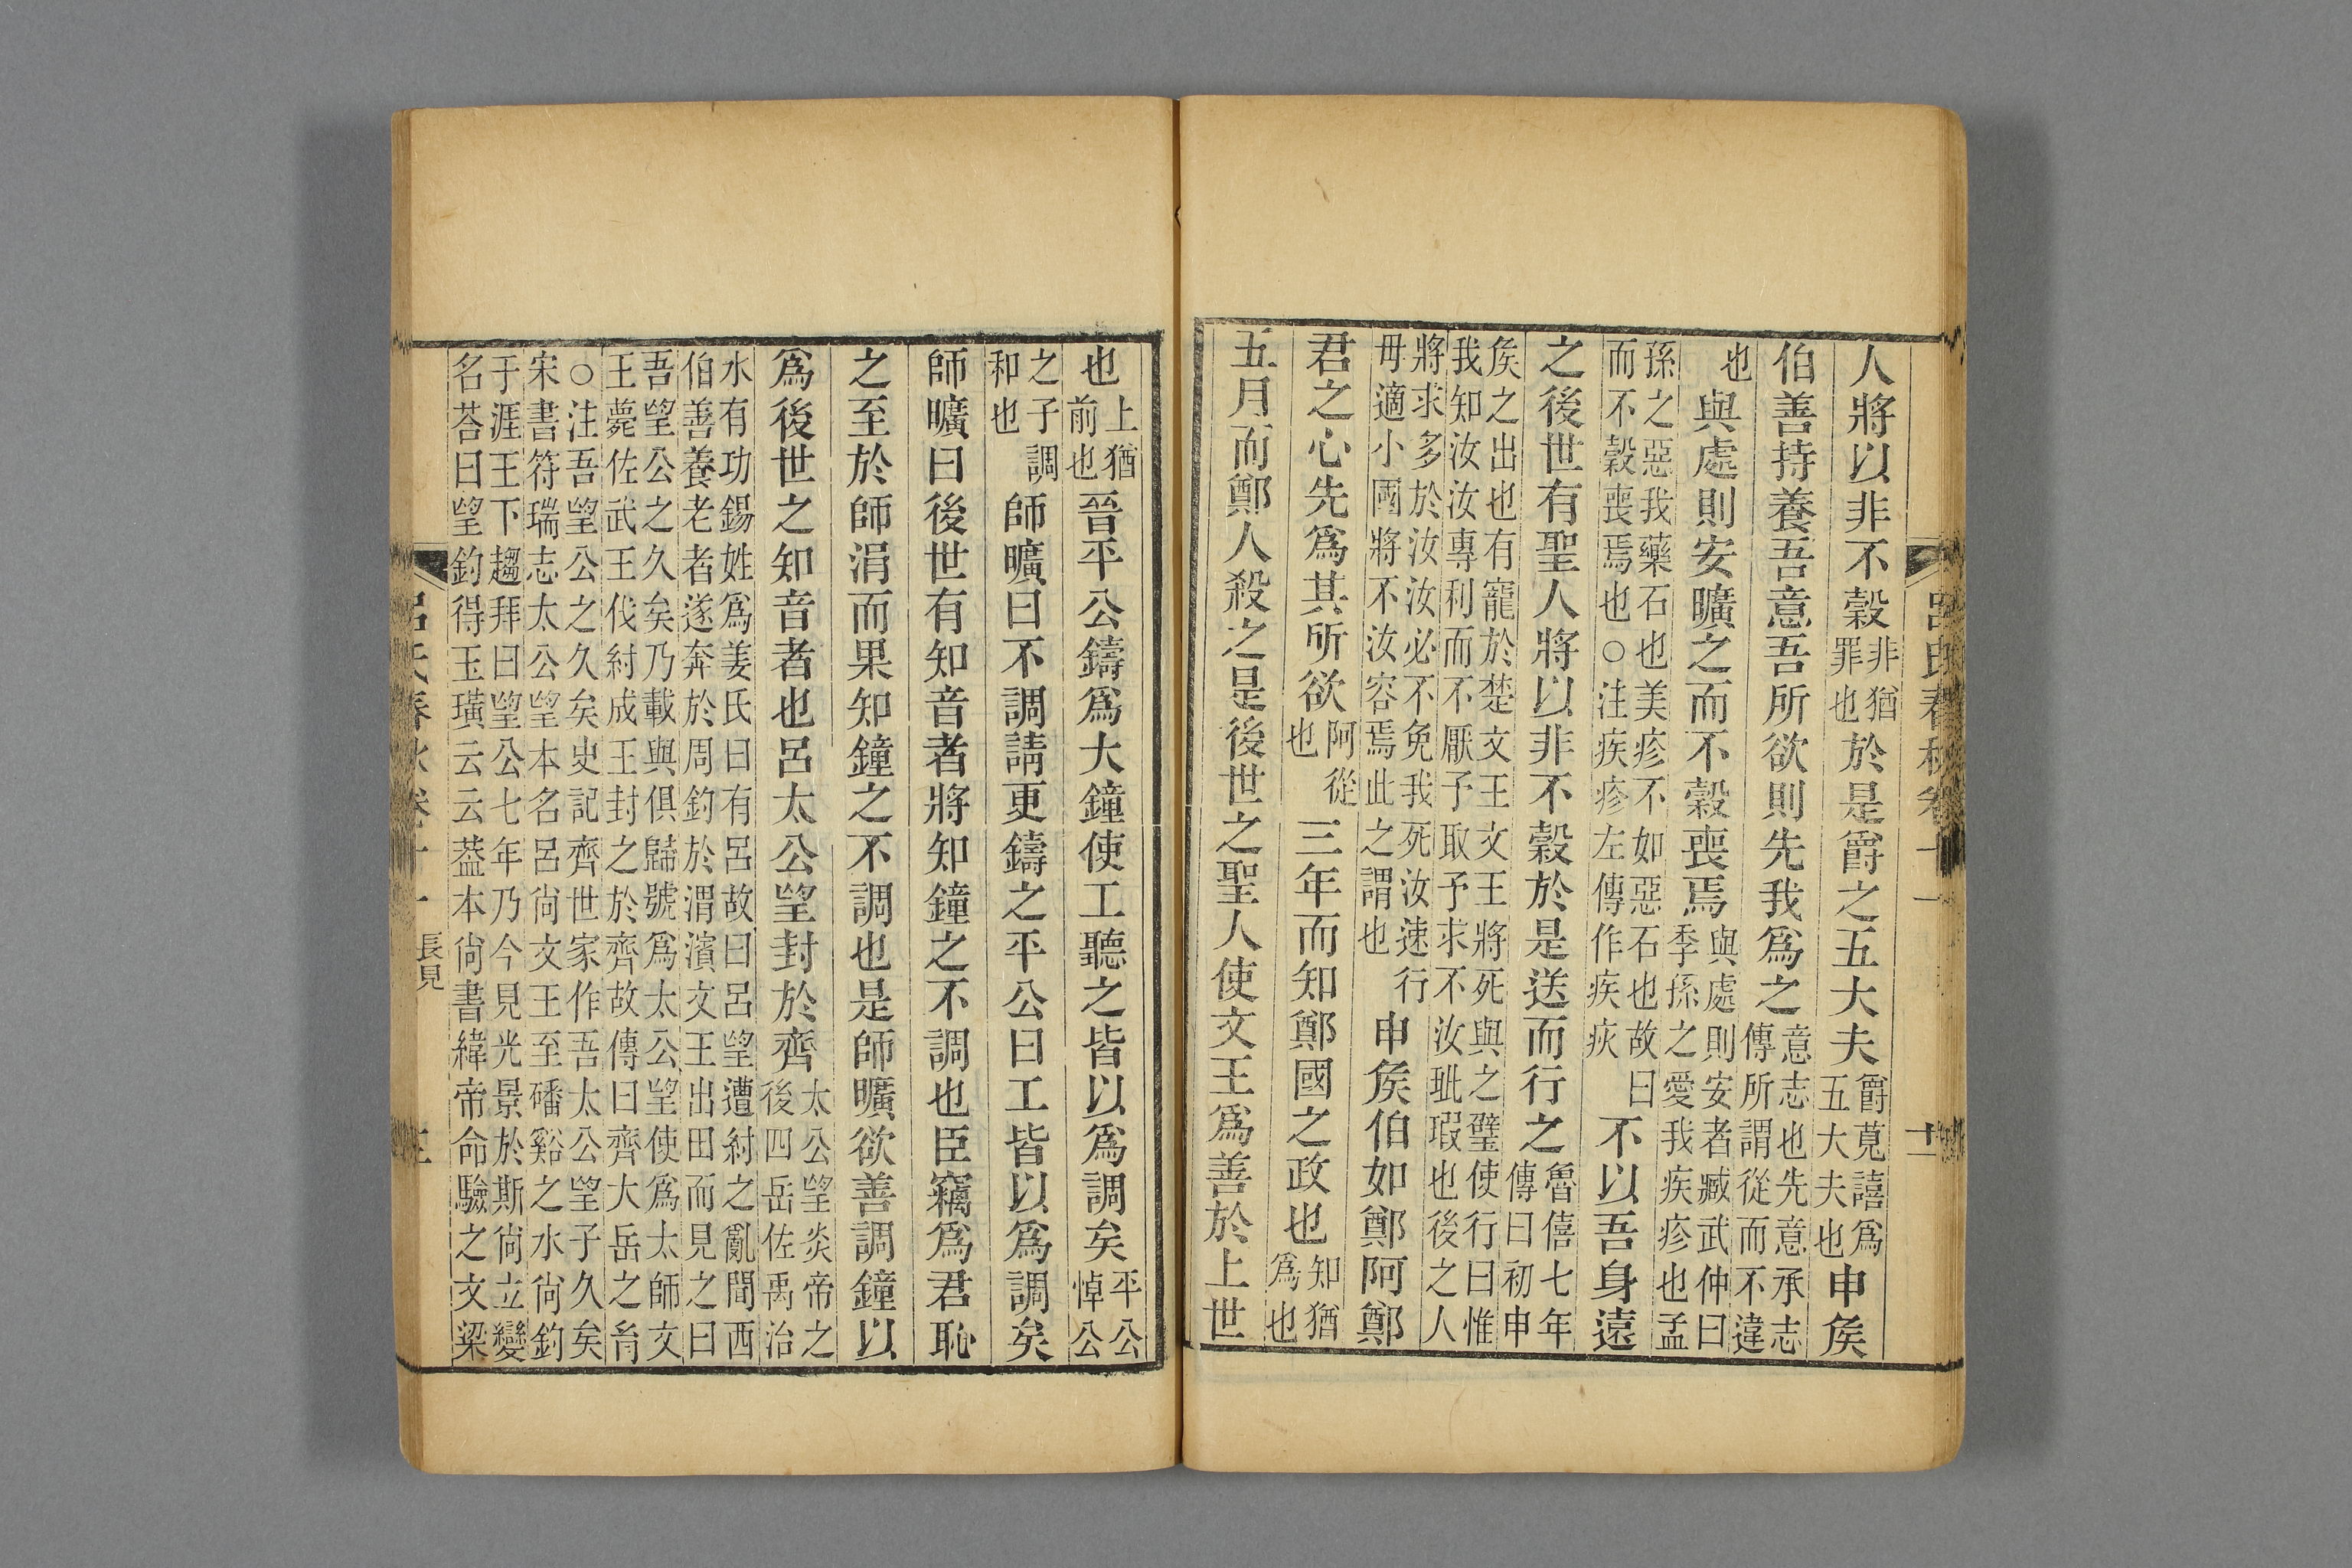 呂氏春秋卷十一 十二
人將以非不穀非猶罪也於是爵之五大夫爵莧譆爲五大夫也申矦
伯善持養吾意吾所欲則先我爲之意志也先意承志傳所謂從而不違
也與處則安曠之而不穀喪焉與處則安者臧武仲曰季孫之愛我疾疹也孟
孫之惡我藥石也美疹不如惡石也故曰
而不穀喪焉也○注疾疹左傳作疾疢不以吾身遠
之後世有聖人將以非不穀於是送而行之魯僖七年傳曰初申
矦之出也有寵於楚文王文王將死與之璧使行曰惟
我知汝汝專利而不厭予取予求不汝玼瑕也後之人
將求多於汝汝必不免我死汝速行
毋適小國將不汝容焉此之謂也申矦伯如鄭阿鄭
君之心先爲其所欲阿從也三年而知鄭國之政也知猶爲也
五月而鄭人殺之是後世之聖人使文王爲善於上世
也上猶前也晉平公鑄爲大鐘使工聽之皆以爲調矣平公悼公
之子調和也師曠曰不調請更鑄之平公曰工皆以爲調矣
師曠曰後世有知音者將知鐘之不調也臣竊爲君恥
之至於師涓而果知鐘之不調也是師曠欲善調鐘以
爲後世之知音者也呂太公望封於齊太公望炎帝之後四岳佐禹治
水有功錫姓爲姜氏曰有呂故曰呂望遭紂之亂聞西
伯善養老者遂奔於周釣於渭濱文王出田而見之曰
吾望公之久矣乃載與俱歸號爲太公望使爲太師文
王薨佐武王伐紂成王封之於齊故傳曰齊大岳之胄
○注吾望公之久矣史記齊世家作吾太公望子久矣
宋書符瑞志太公望本名呂尚文王至磻谿之水尚釣
于涯王下趨拜曰望公七年乃今見光景於斯尚立變
名荅曰望釣得玉璜云云葢本尚書緯帝命驗之文梁
呂氏春秋卷十一 長見